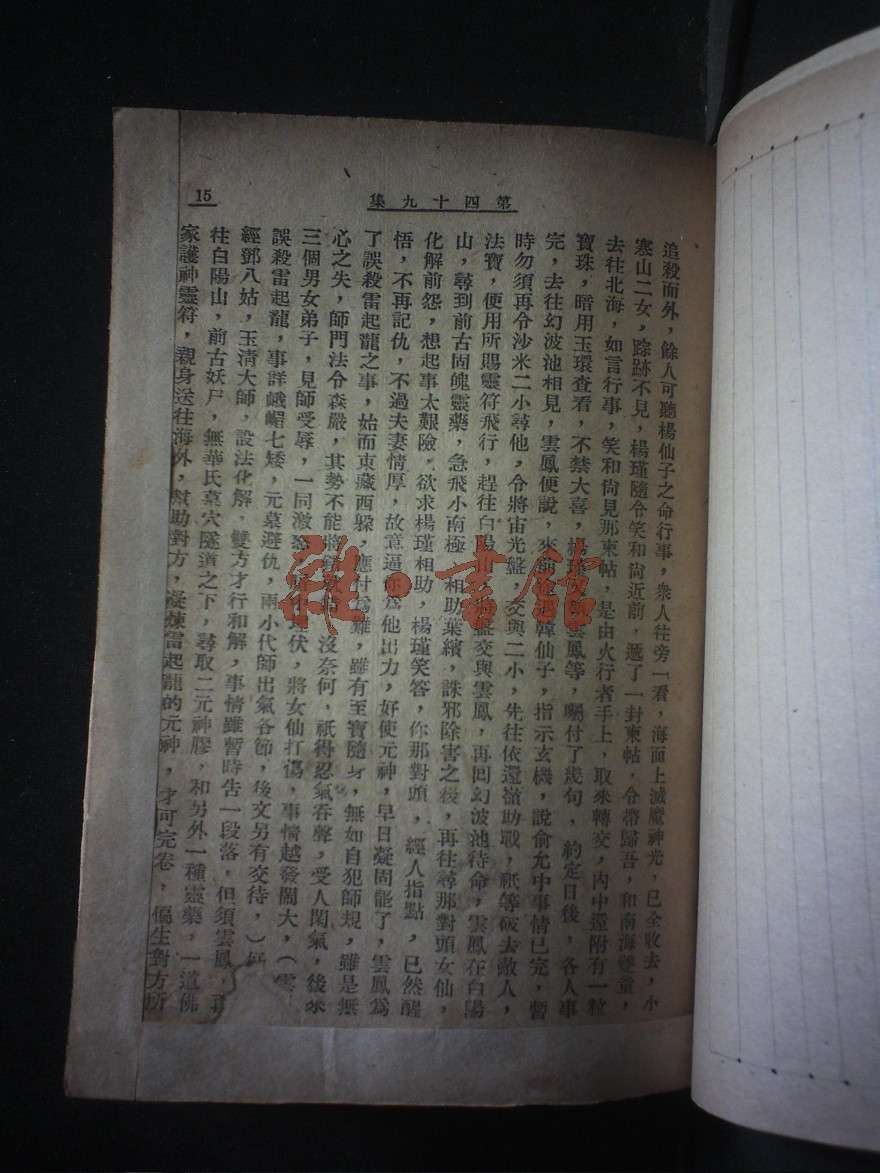 第四十九集
15
追殺而外，餘人可聽楊仙子之命行事，衆人往旁一看，海面上滅魔神光，已全收去，小
寒山二女，踪跡不見，楊瑾隨令笑和尙近前，遞了一封柬帖，令帶歸吾，和南海雙童，
去往北海，如言行事，笑和尙見那柬帖，是由火行者手上，取來轉交，內中還附有一粒
寶珠，暗用玉環查看，不禁大喜，楊瑾又領雲鳳等，囑付了幾句，約定日後，各人事
完，去往幻波池相見，雲鳳便說，來前韓仙子，指示玄機，說俞允中事情已完，暫
時勿須再令沙米二小尋他，令將宙光盤，交與二小，先往依還嶺助戰，祇等破去敵人，
法寶，便用所賜靈符飛行，趕往白陽山，將盤交與雲鳳，再回幻波池待命，雲鳳在白陽
山，尋到前古固魄靈藥，急飛小南極，相助葉繽，誅邪除害之後，再往尋那對頭女仙，
化解前怨，想起事太艱險，欲求楊瑾相助，楊瑾笑答，你那對頭，經人指點，已然醒
悟，不再記仇，不過夫妻情厚，故意逼你爲他出力，好使元神，早日凝固罷了，雲鳳爲
了誤殺雷起龍之事，始而東藏西躲，應付爲難，雖有至寶隨身，無如自犯師規，雖是無
心之失，師門法令森嚴，其勢不能將錯就錯，沒奈何，祇得忍氣吞聲，受人閑氣，後來
三個男女弟子，見師受辱，一同激怒，埋伏，將女仙打傷，事情越發鬧大，（雲
誤殺雷起龍，事詳峨嵋七矮，元墓避仇，兩小代師出氣各節，後文另有交待，）
經鄧八姑，玉清大師，設法化解，雙方才行和解，事情雖暫時告一段落，但須雲鳳，再
往白陽山，前古妖尸，無華氏墓穴隧道之下，尋取二元神膠，和另外一種靈藥，一道佛
家護神靈符，親身送往海外，幫助對方，凝煉雷起龍的元神，才可完卷，偏生對方所
雜·書館